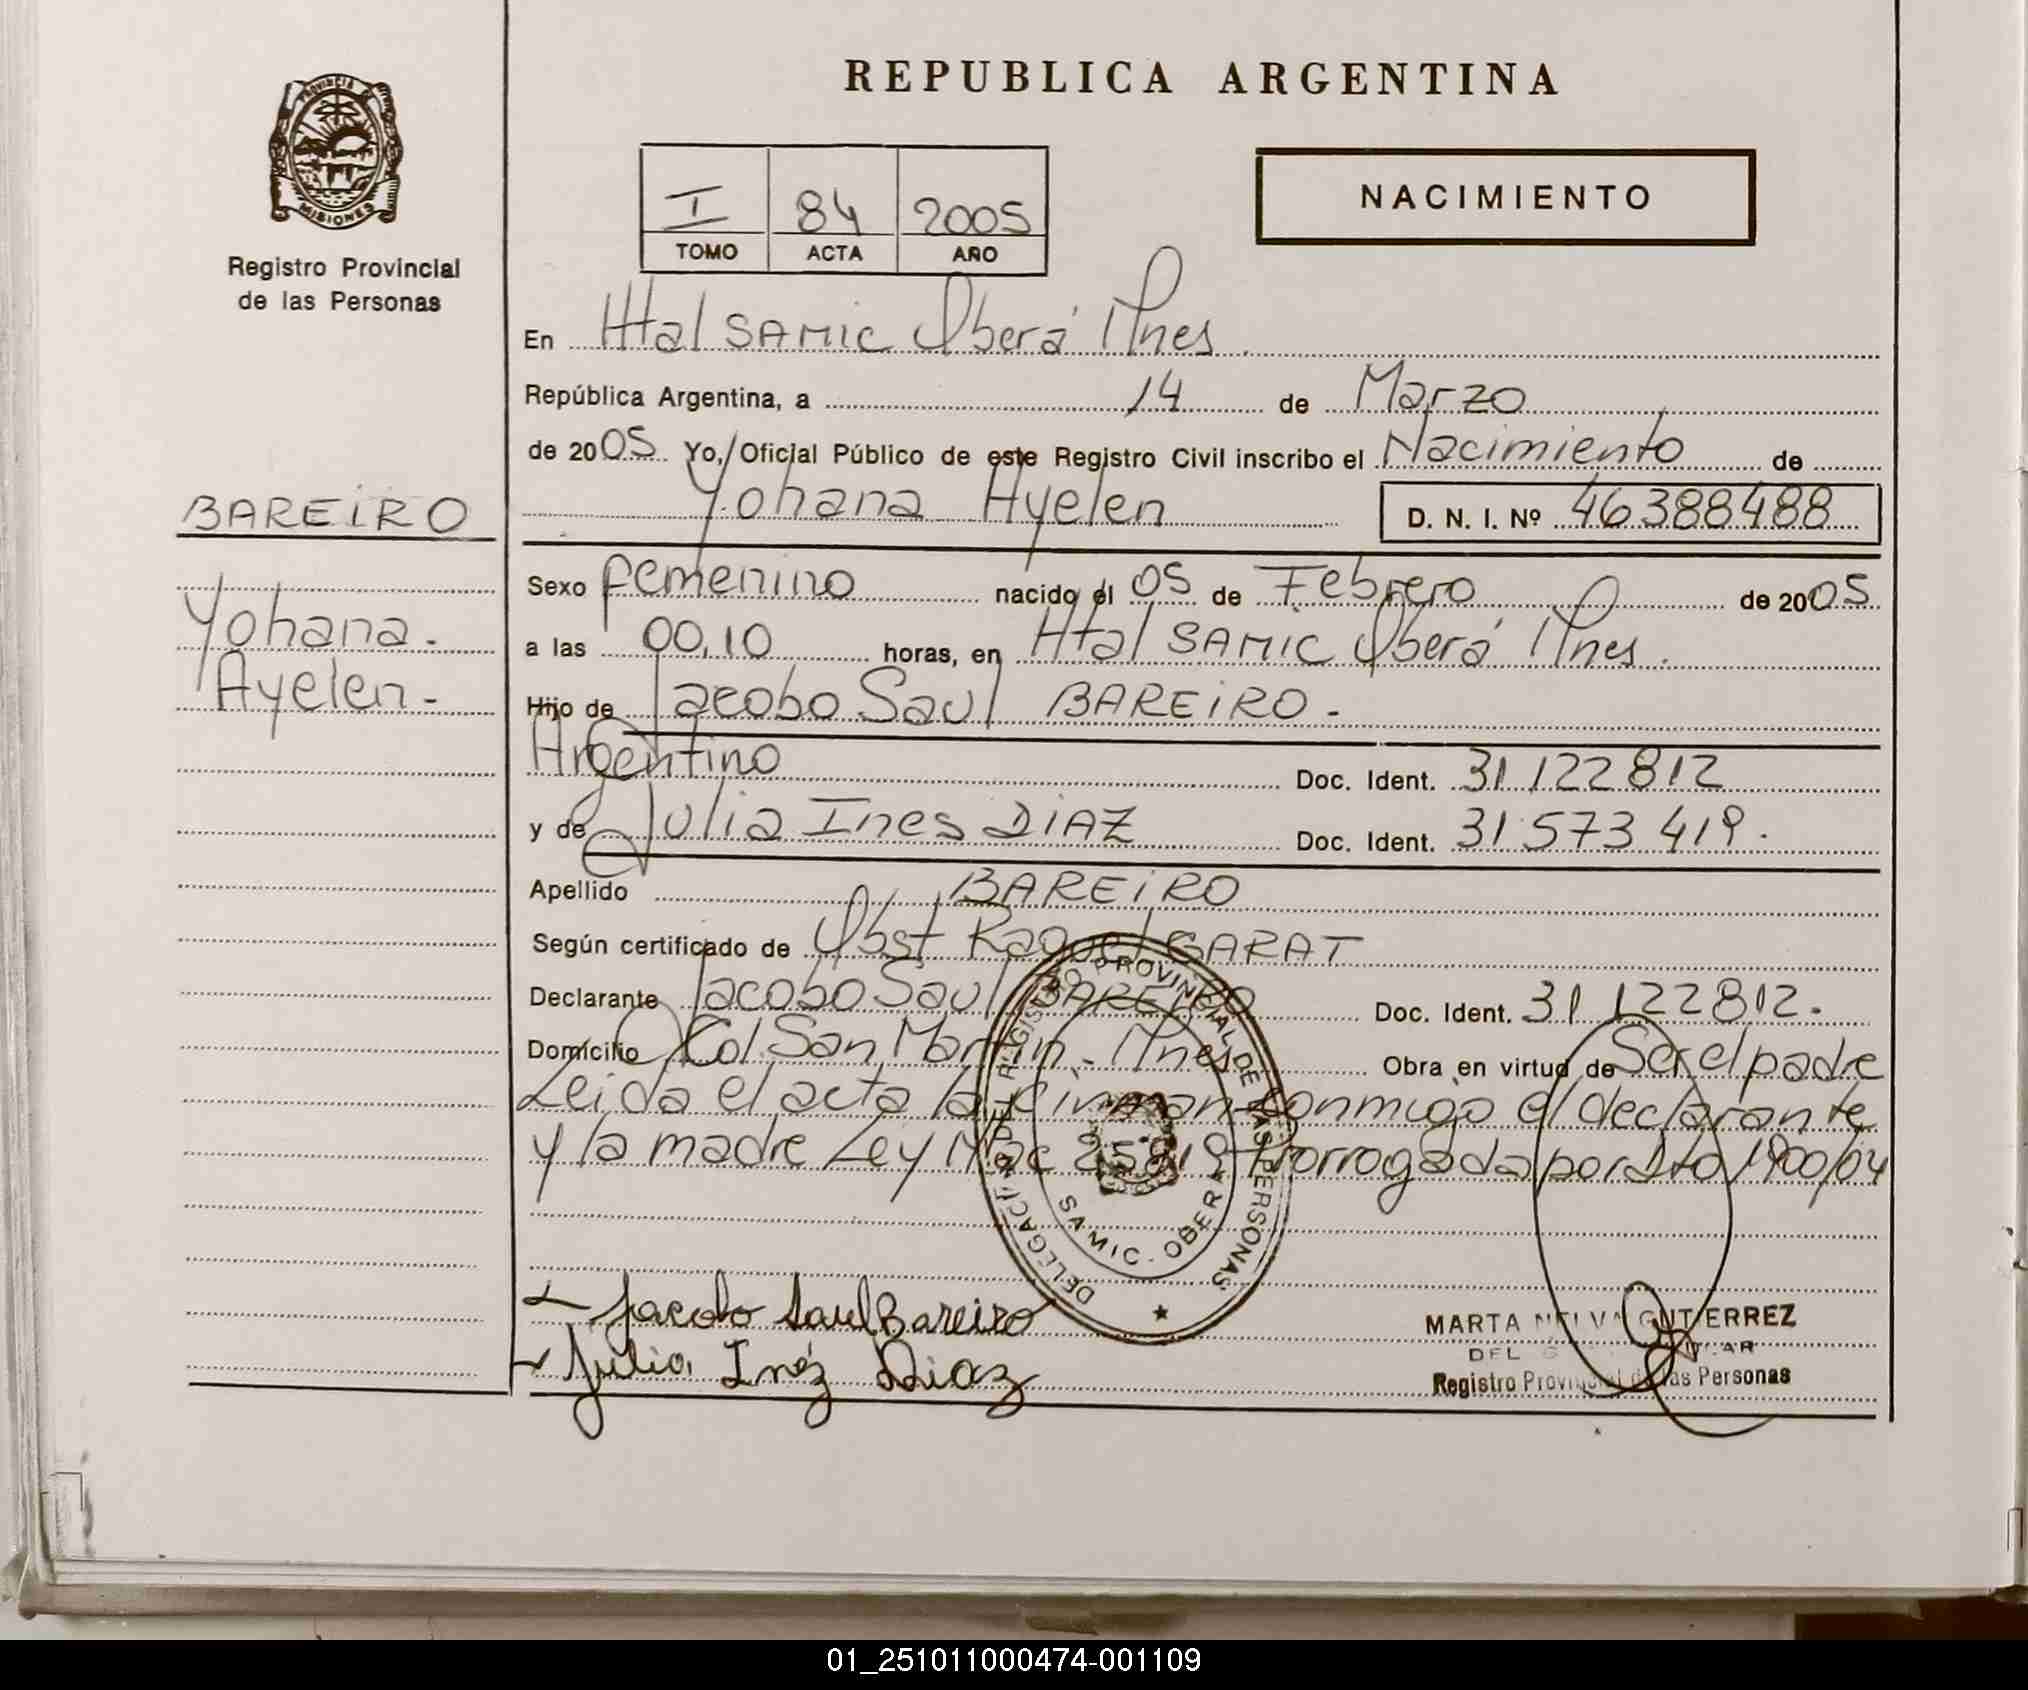 PROVINCIA DE
MISIONES
Registro Provincial
de las Personas
BAREIRO
Yohana.
Ayelen-
REPUBLICA ARGENTINA
I 84 2005
TOMO ACTA AÑO
NACIMIENTO
En Htal SAMIC Oberá Mnes.
República Argentina, a 14 de Marzo
de 2005 Yo, Oficial Público de este Registro Civil inscribo el Nacimiento de
Yohana Ayelen D. N. I. Nº 46388488
Sexo femenino nacido el 05 de Febrero de 2005
a las 00,10 horas, en Htal SAMIC Oberá Mnes.
Hijo de Jacobo Saul BAREIRO.-
Argentino Doc. Ident. 31 122 812
y de Julia Ines DIAZ Doc. Ident. 31 573 419.
Apellido BAREIRO
Según certificado de Obst Raquel GARAT
Declarante Jacobo Saul BAREIRO Doc. Ident. 31 122 812.
Domicilio Col. San Martin - Mnes Obra en virtud de Ser el padre
Leida el acta la firman conmigo el declarante
y la madre Ley Nac 25819 Prorrogada por Dto 1900/04
DELEGACION REGISTRO PROVINCIAL DE LAS PERSONAS
SAMIC - OBERA
Jacobo Saul Bareiro
Julia Inéz Diaz
MARTA NELVA GUTIERREZ
Registro Provincial de las Personas
01_251011000474-001109